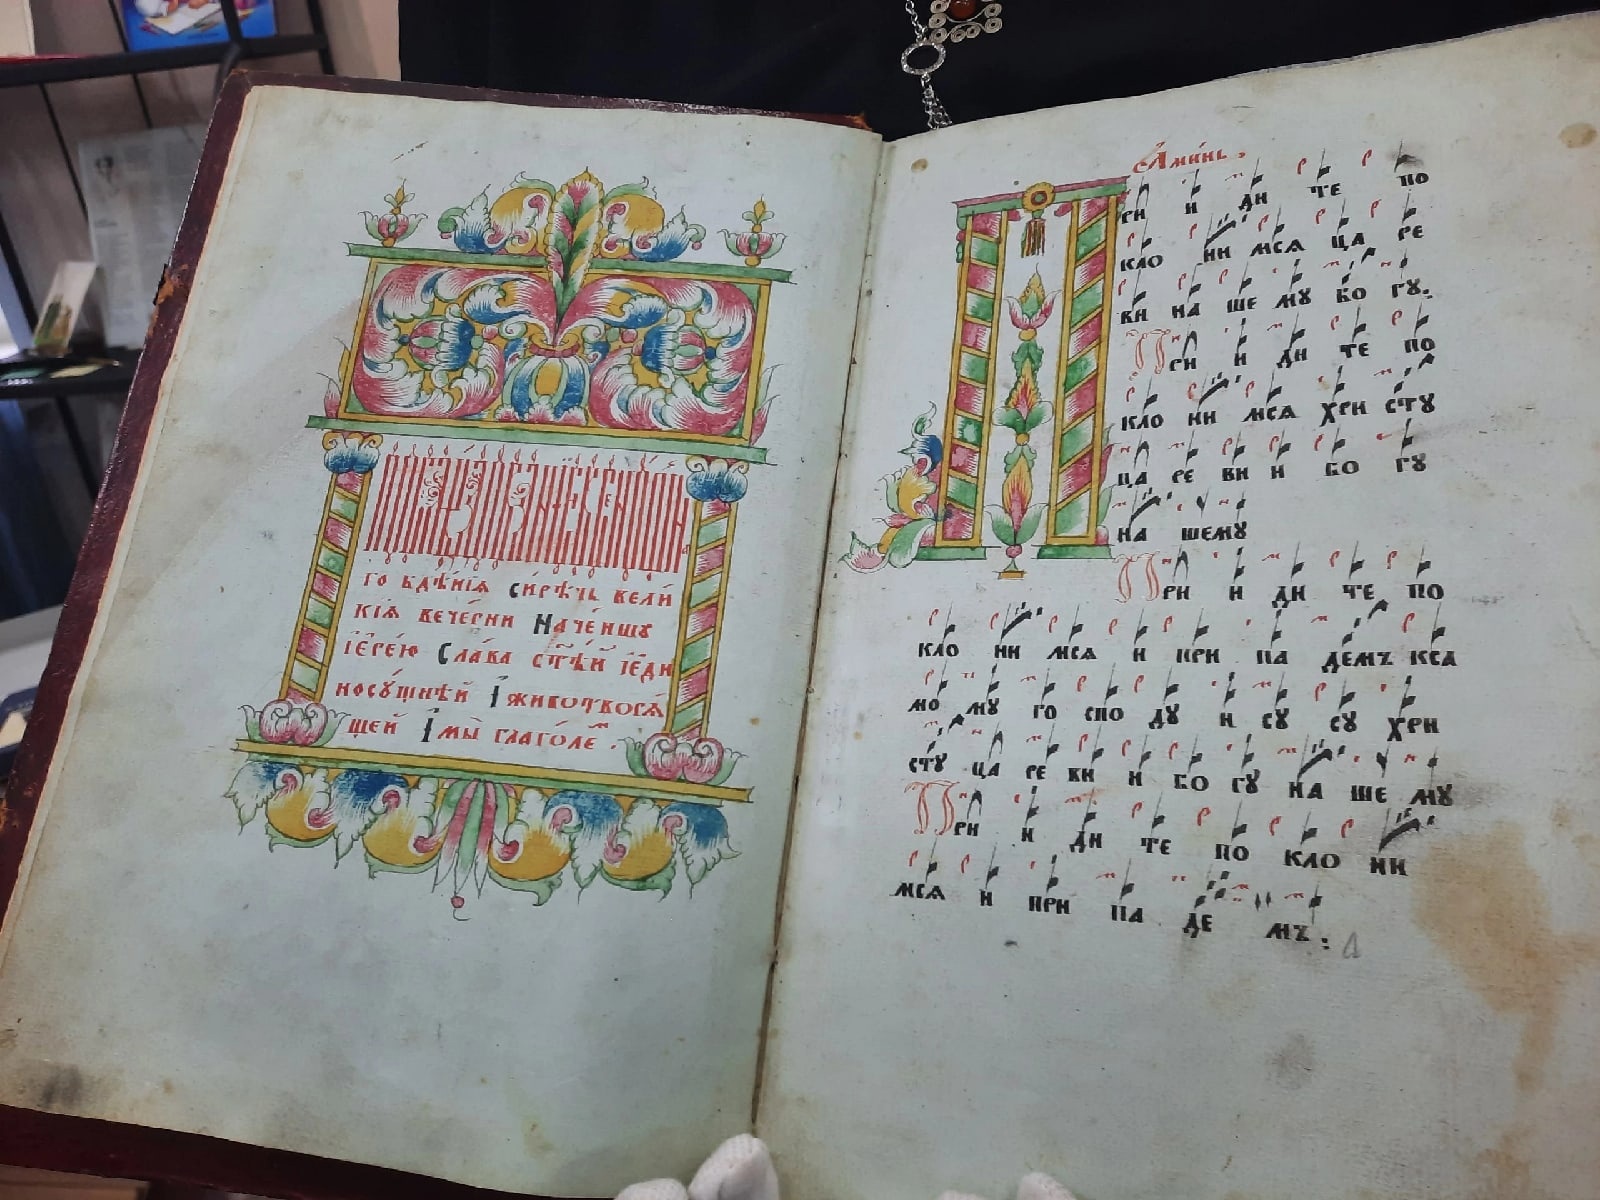 го бдѣ́нїѧ сирѣ́чь вели́
кїѧ вече́рни Наче́ншу
їере́ю Сла́ва ст҃ѣ́й їеди
носу́щнѣй Ї животворѧ́
щей Ї мы̀ глаго́ле .
А҆ми́нь .
ри и ди те по
кло ни мсѧ ца ре
ви на ше мꙋ бо гꙋ .
При и ди те по
кло ни мсѧ хри стꙋ
ца ре ви и бо гꙋ
на шемꙋ
При и ди те по
кло ни мсѧ и при па демъ кса
мо мꙋ го спо дꙋ и сꙋ сꙋ хри
стꙋ ца ре ви и бо гꙋ на ше мꙋ
При и ди те по кло ни
мсѧ и при па де мъ :